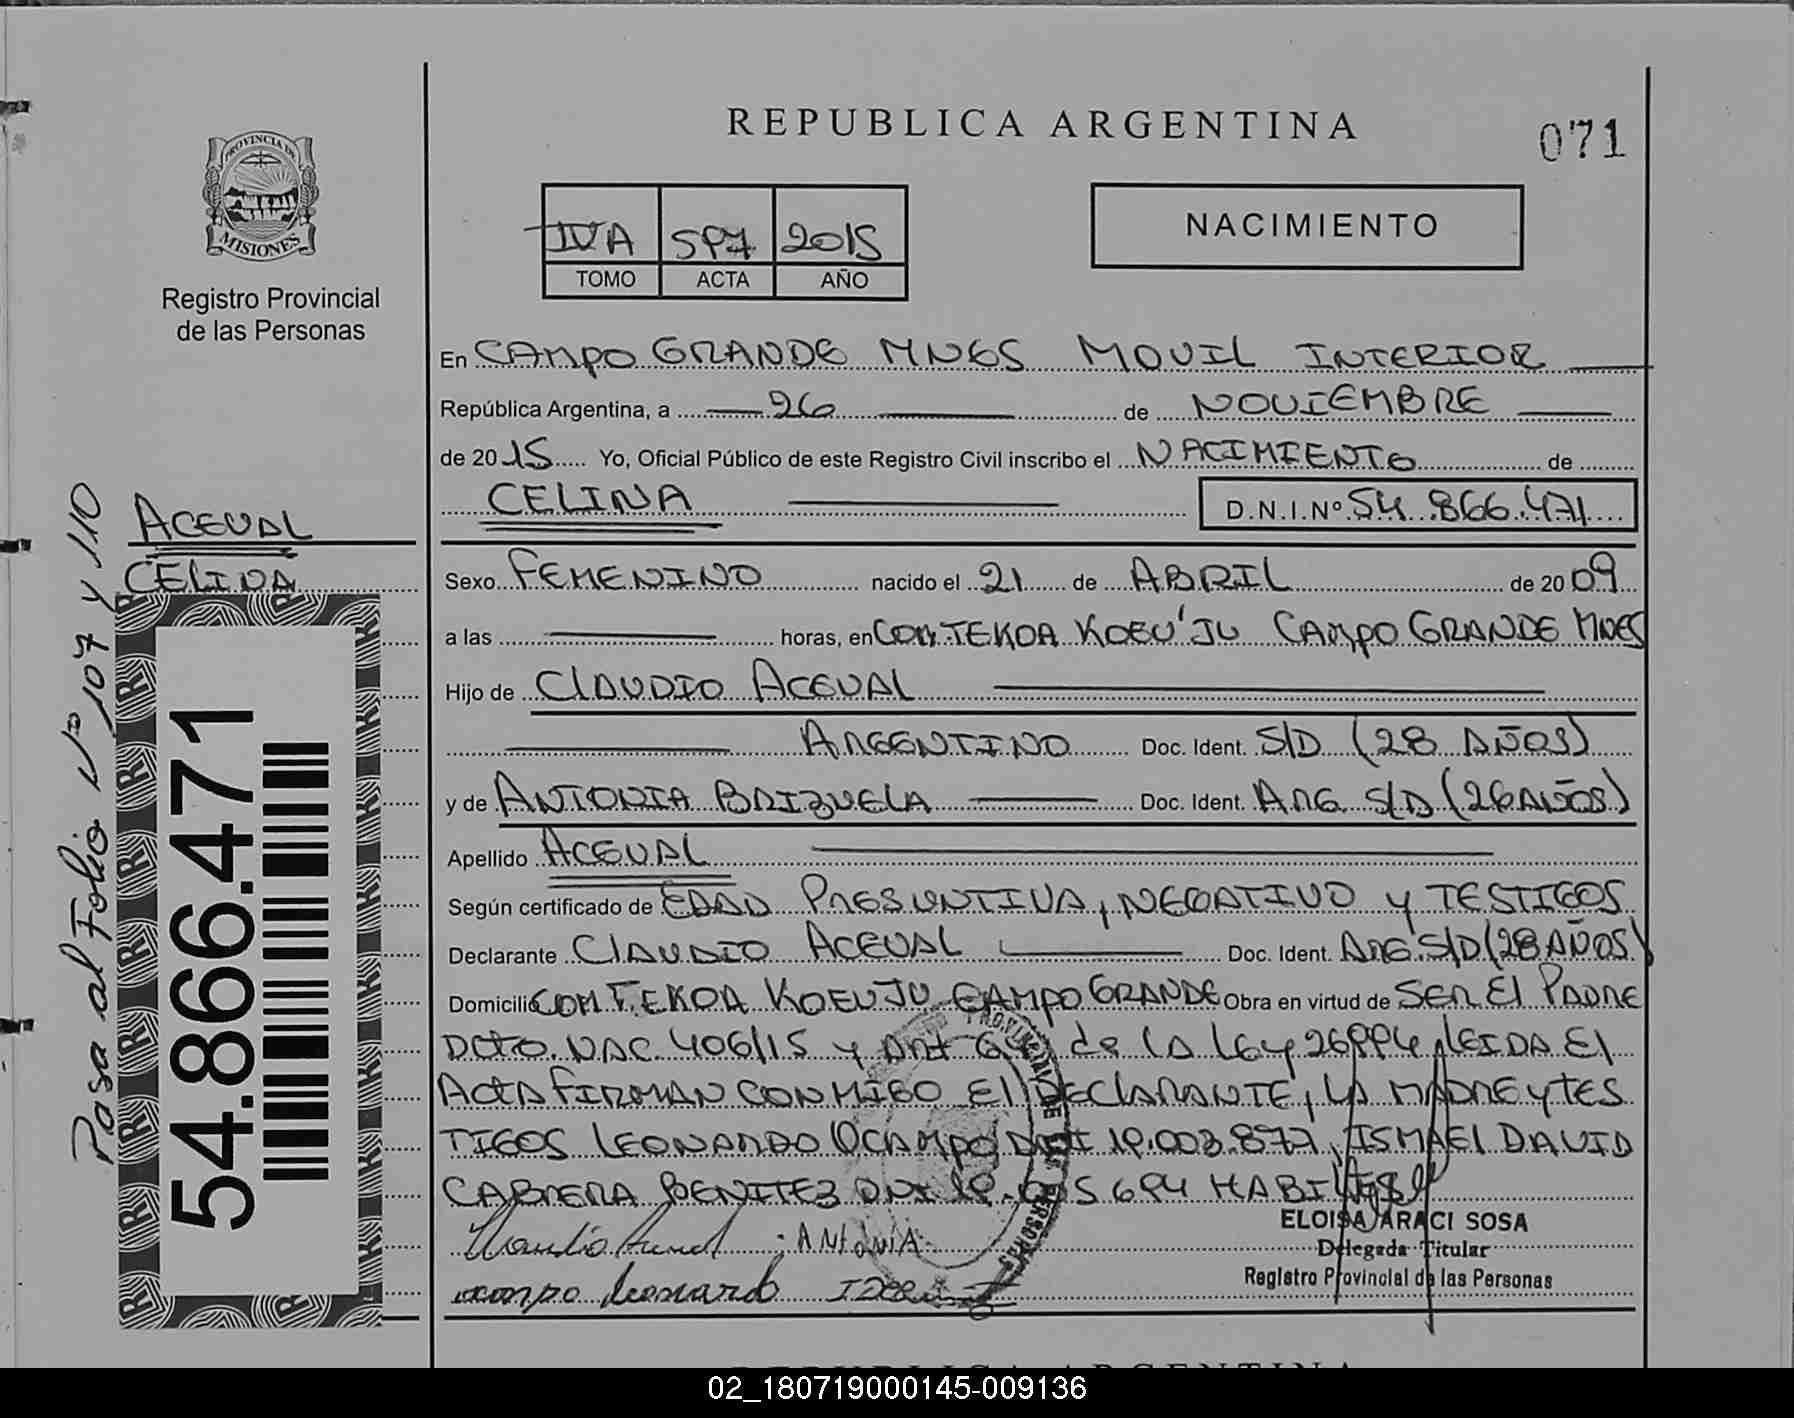 REPUBLICA ARGENTINA
071
PROVINCIA DE
MISIONES
Registro Provincial
de las Personas
IVA 597 2015
TOMO ACTA AÑO
NACIMIENTO
En CAMPO GRANDE MNES MOVIL INTERIOR
República Argentina, a 26 de NOVIEMBRE
de 2015 Yo, Oficial Público de este Registro Civil inscribo el NACIMIENTO de
CELINA
D.N.I.Nº 54.866.471
ACEVAL
CELINA
Sexo FEMENINO nacido el 21 de ABRIL de 2009
a las horas, en COM. TEKOA KOEU'JU CAMPO GRANDE MNES
Hijo de CLAUDIO ACEVAL
ARGENTINO Doc. Ident. S/D (28 AÑOS)
y de ANTONIA BRIZUELA Doc. Ident. ARG. S/D (26 AÑOS)
Apellido ACEVAL
Según certificado de EDAD PRESUNTIVA, NEGATIVO y TESTIGOS
Declarante CLAUDIO ACEVAL Doc. Ident. ARG. S/D (28 AÑOS)
Domicilio COM. TEKOA KOEUJU CAMPO GRANDE Obra en virtud de SER El PADRE
DCTO. NAC. 406/15 y ART 64 de LA LEY 26994 LEIDA El
ACTA FIRMAN CONMIGO El DECLARANTE, LA MADRE y TES
TIGOS LEONARDO OCAMPO DNI 19.003.877, ISMAEL DAVID
CABRERA BENITEZ DNI 694 HABILES
ANTONIA
ocampo leonardo
ELOISA ARACI SOSA
Delegada Titular
Registro Provincial de las Personas
Pasa al Folio Nº 107 y 110
54.866.471
REPUBLICA ARGENTINA
02_180719000145-009136